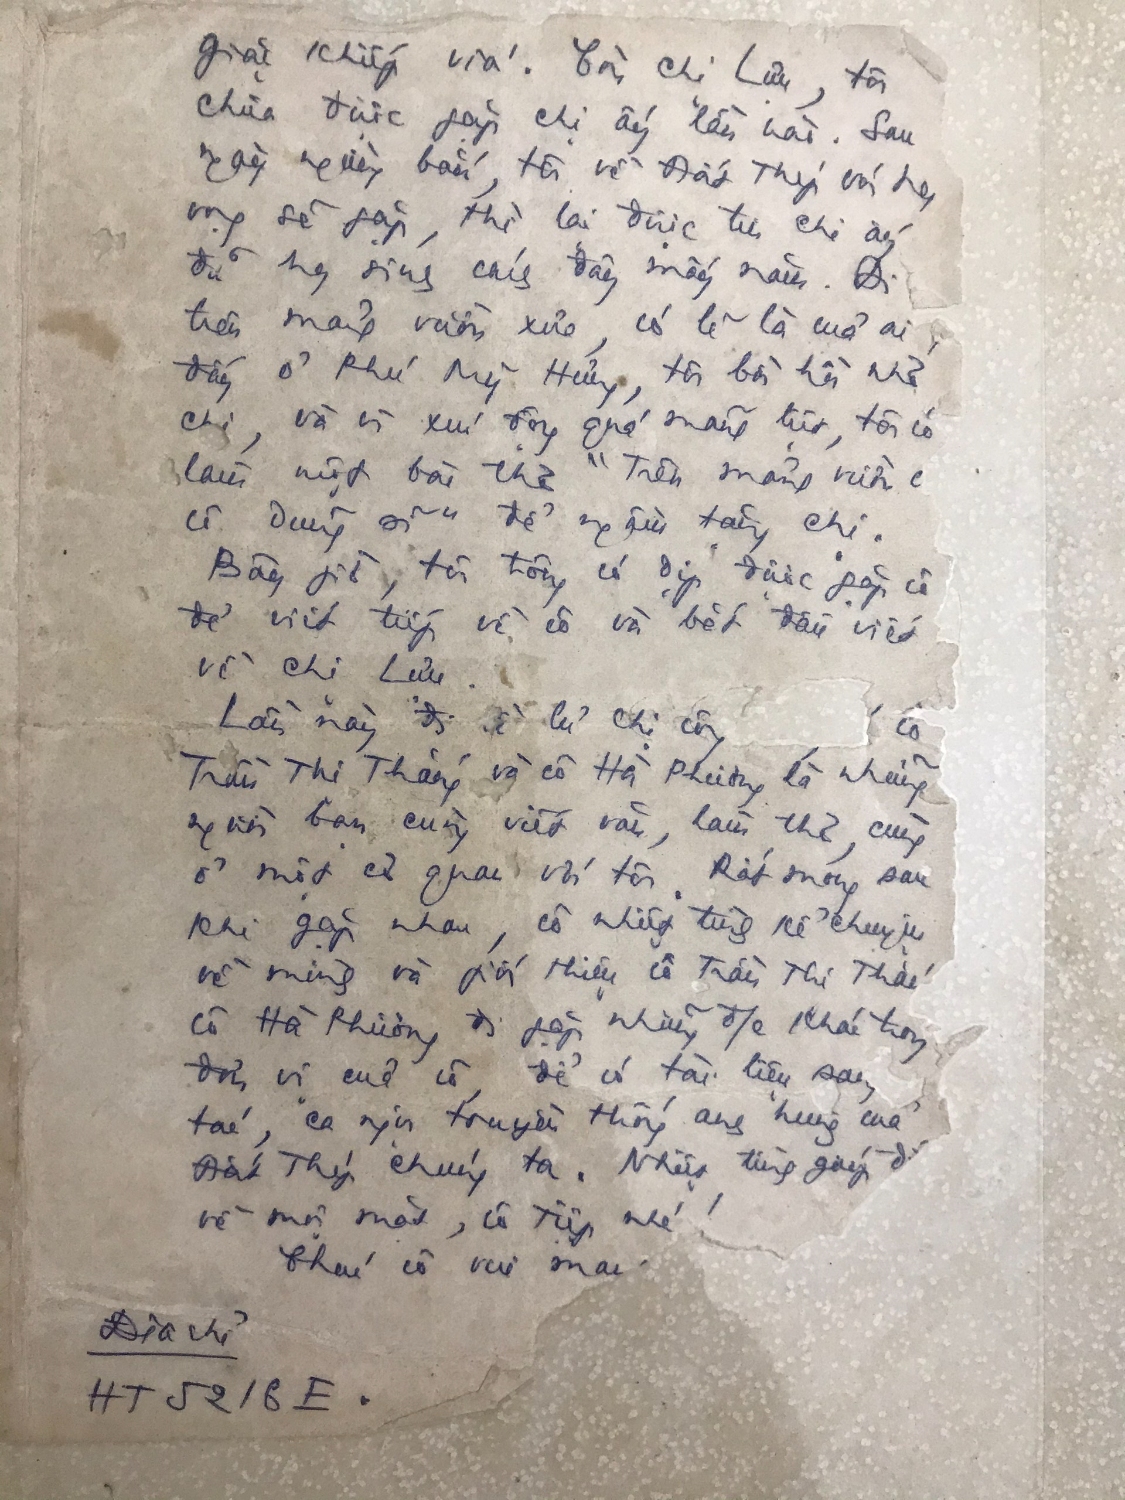 giải khiếp via'. Còn chị Lựu, tôi
chưa được gặp chị ấy lần nào. Sau
ngày ngừng bắn, tôi về Đất Thép với hy
vọng sẽ gặp, thì lại được tin chị ấy
đã hy sinh cách đây mấy năm. Đi
trên mảnh vườn xưa, có lẽ là của ai
đấy ở Phú Mỹ Hưng, tôi bồi hồi nhớ
chị, và vì xúc động quá mãnh liệt, tôi có
làm một bài thơ "Trên mảnh vườn c
có dũng sĩ" để ngậm tặng chị.
Bây giờ, tôi trông có dịp được gặp cô
để viết tiếp về cô và bắt đầu viết
về chị Lựu.
Lần này đi chị cô
Trần Thị Thắng và cô Hà Phương là những
người bạn cùng viết văn, làm thơ, cùng
ở một cơ quan với tôi. Rất mong sau
khi gặp nhau, cô nhiệt tình kể chuyện
về mình và giới thiệu cô Trần Thị Thắ
cô Hà Phương đi gặp những đ/c khác trong
đơn vị của cô, để có tài liệu sáng
tác, ca ngợi truyền thống anh hùng của
Đất Thép chúng ta. Nhiệt tình giúp đ
về mọi mặt, cô Tiếp nhé!
Chúc cô vui mạ
Địa chỉ
HT 521B E.